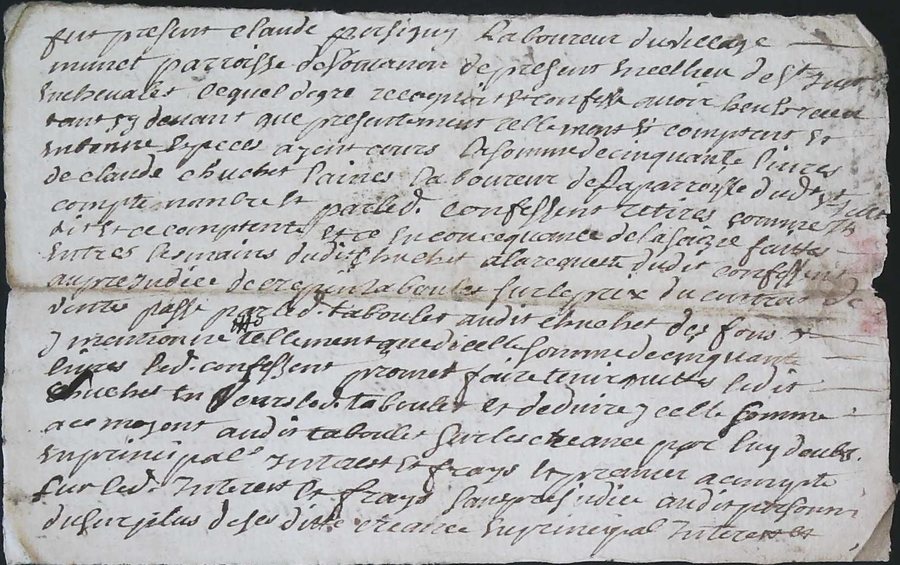 fut present claude persigny Laboureur du village
munet parroisse de de present au lieu de St Just
en chevalet lequel de gre recognoit et confesse avoir heu et receu
tant cy devant que presentement tellemant et comptent et
en bonne especes ayent cours La somme de cinquante livres
de claude chuchet laines Laboureur de sa parroisse dudt st Just
compte nombre et par led. confessent retires comme
dit et ce comptent et ce en concequance de la faitte
entres les mains dudit chuchet a la requeste dudit confessent
au prejudice de taboulet sur le prix du contrat de
vente passé par led. taboulet audit chuchet des fons
y mentionné tellement que dicelle somme de cinquante
livres led. confessent promet faire tenir quitte ledit
chuchet en vers led. taboulet et deduire ycelle somme
a co audit taboulet sur les creance par luy deubs.
en principal interest et frays et premier acompte
sur led. interest et frays sans prejudice audit persinni
du surplus de ses ditte creance en principal interest et